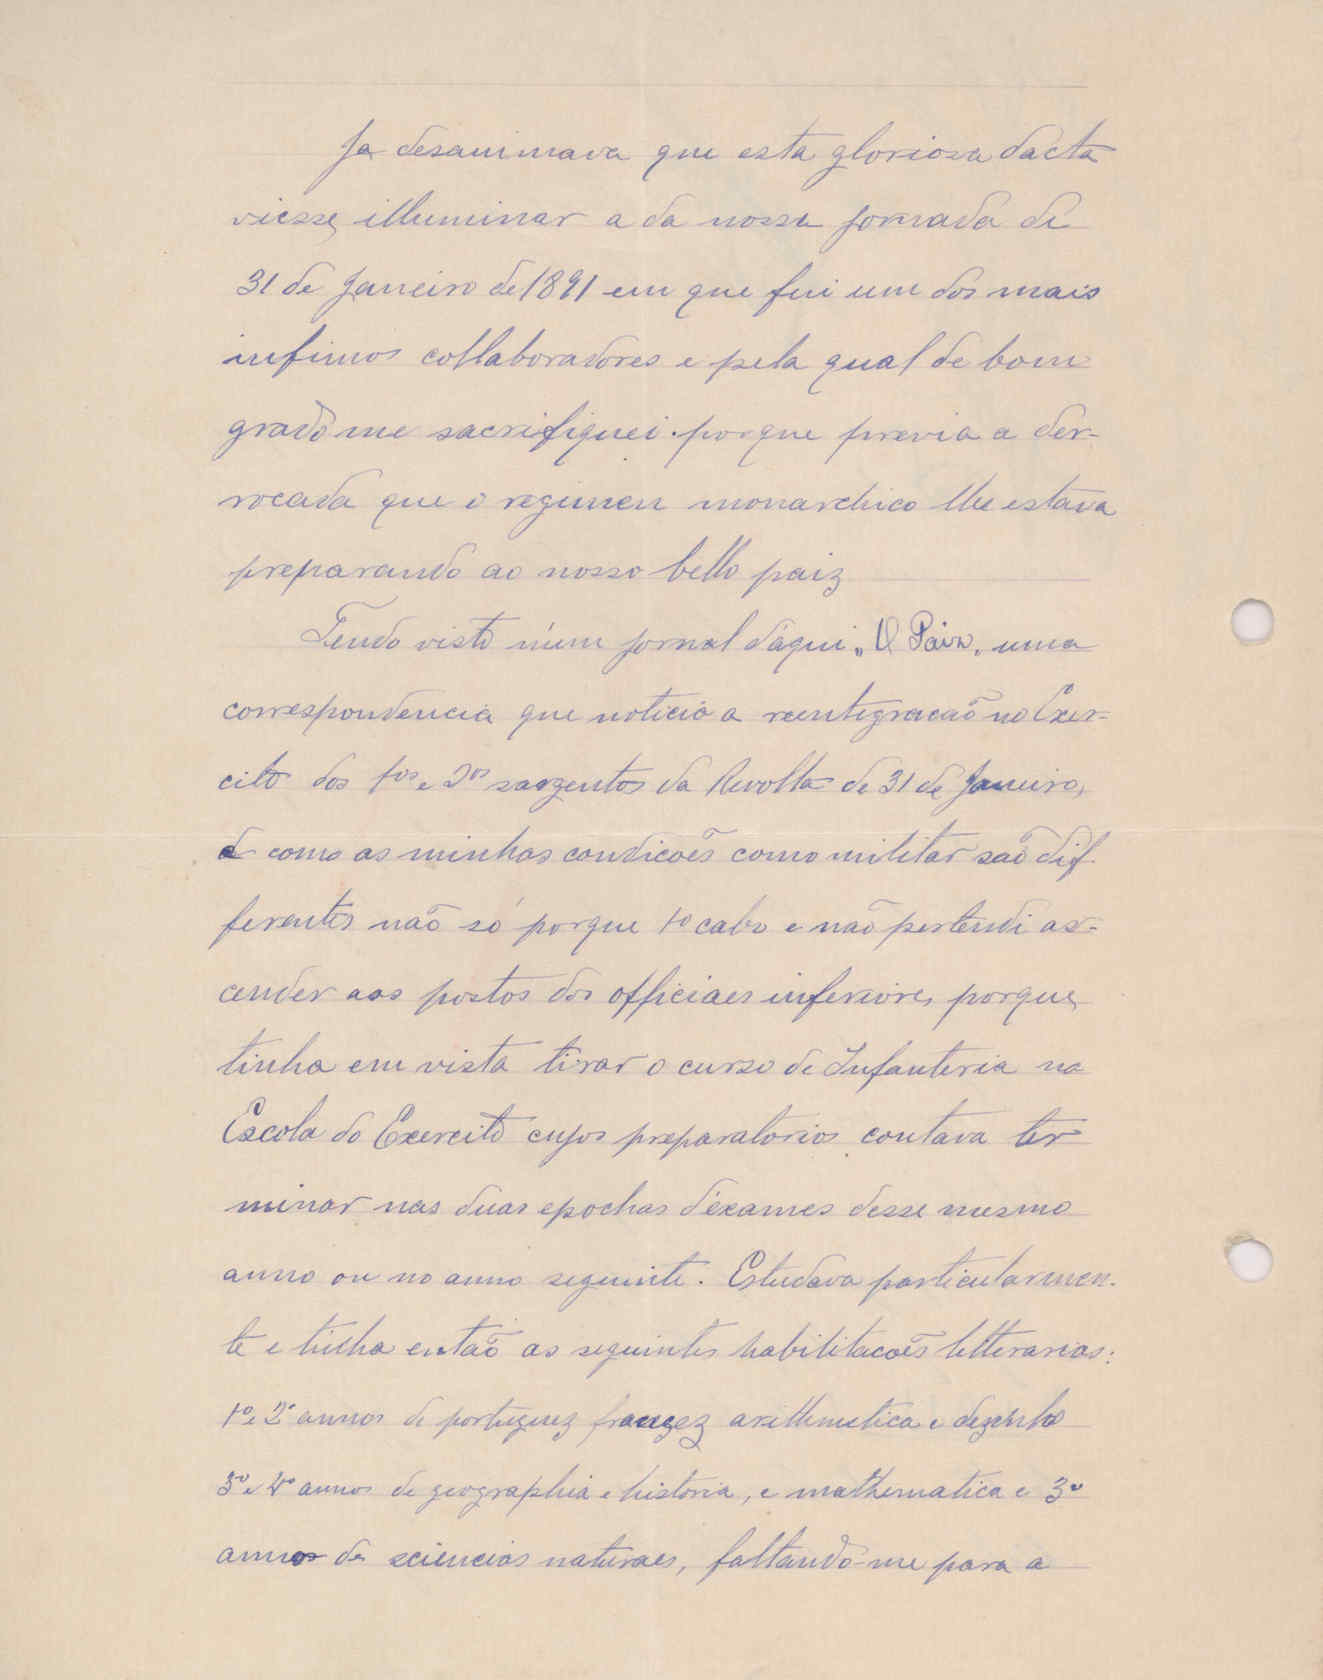 Ja desanimava que esta gloriosa dacta
viesse illuminar a da nossa jornada de
31 de Janeiro de 1891 em que fui um dos mais
infimos collaboradores e pela qual de bom
grado me sacrifiquei porque previa a der-
rocada que o regimen monarchico lhe estava
preparando ao nosso bello paiz
Tendo visto n'um jornal d'aqui "O Paiz" uma
correspondencia que noticia a reentegracaõ no Exer-
cito dos 1os e 2os sargentos da Revolta de 31 de Janeiro,
e como as minhas condicoẽs como militar saõ dif-
ferentes naõ só porque 1o cabo e naõ pertendi as-
cender aos postos dos officiaes inferiores porque
tinha em vista tirar o curso de Infanteria na
Escola do Exercito cujos preparatorios contava ter
minar nas duas epochas d'exames desse mesmo
anno ou no anno seguinte. Estudava particularmen-
te e tinha entaõ as seguintes habilitacoẽs litterarias:
1o e 2o annos de portuguez francez arithmetica e dezenho
3o e 4o annos de geographia e historia, e mathematica e 3o
anno de sciencias naturaes, faltando-me para a